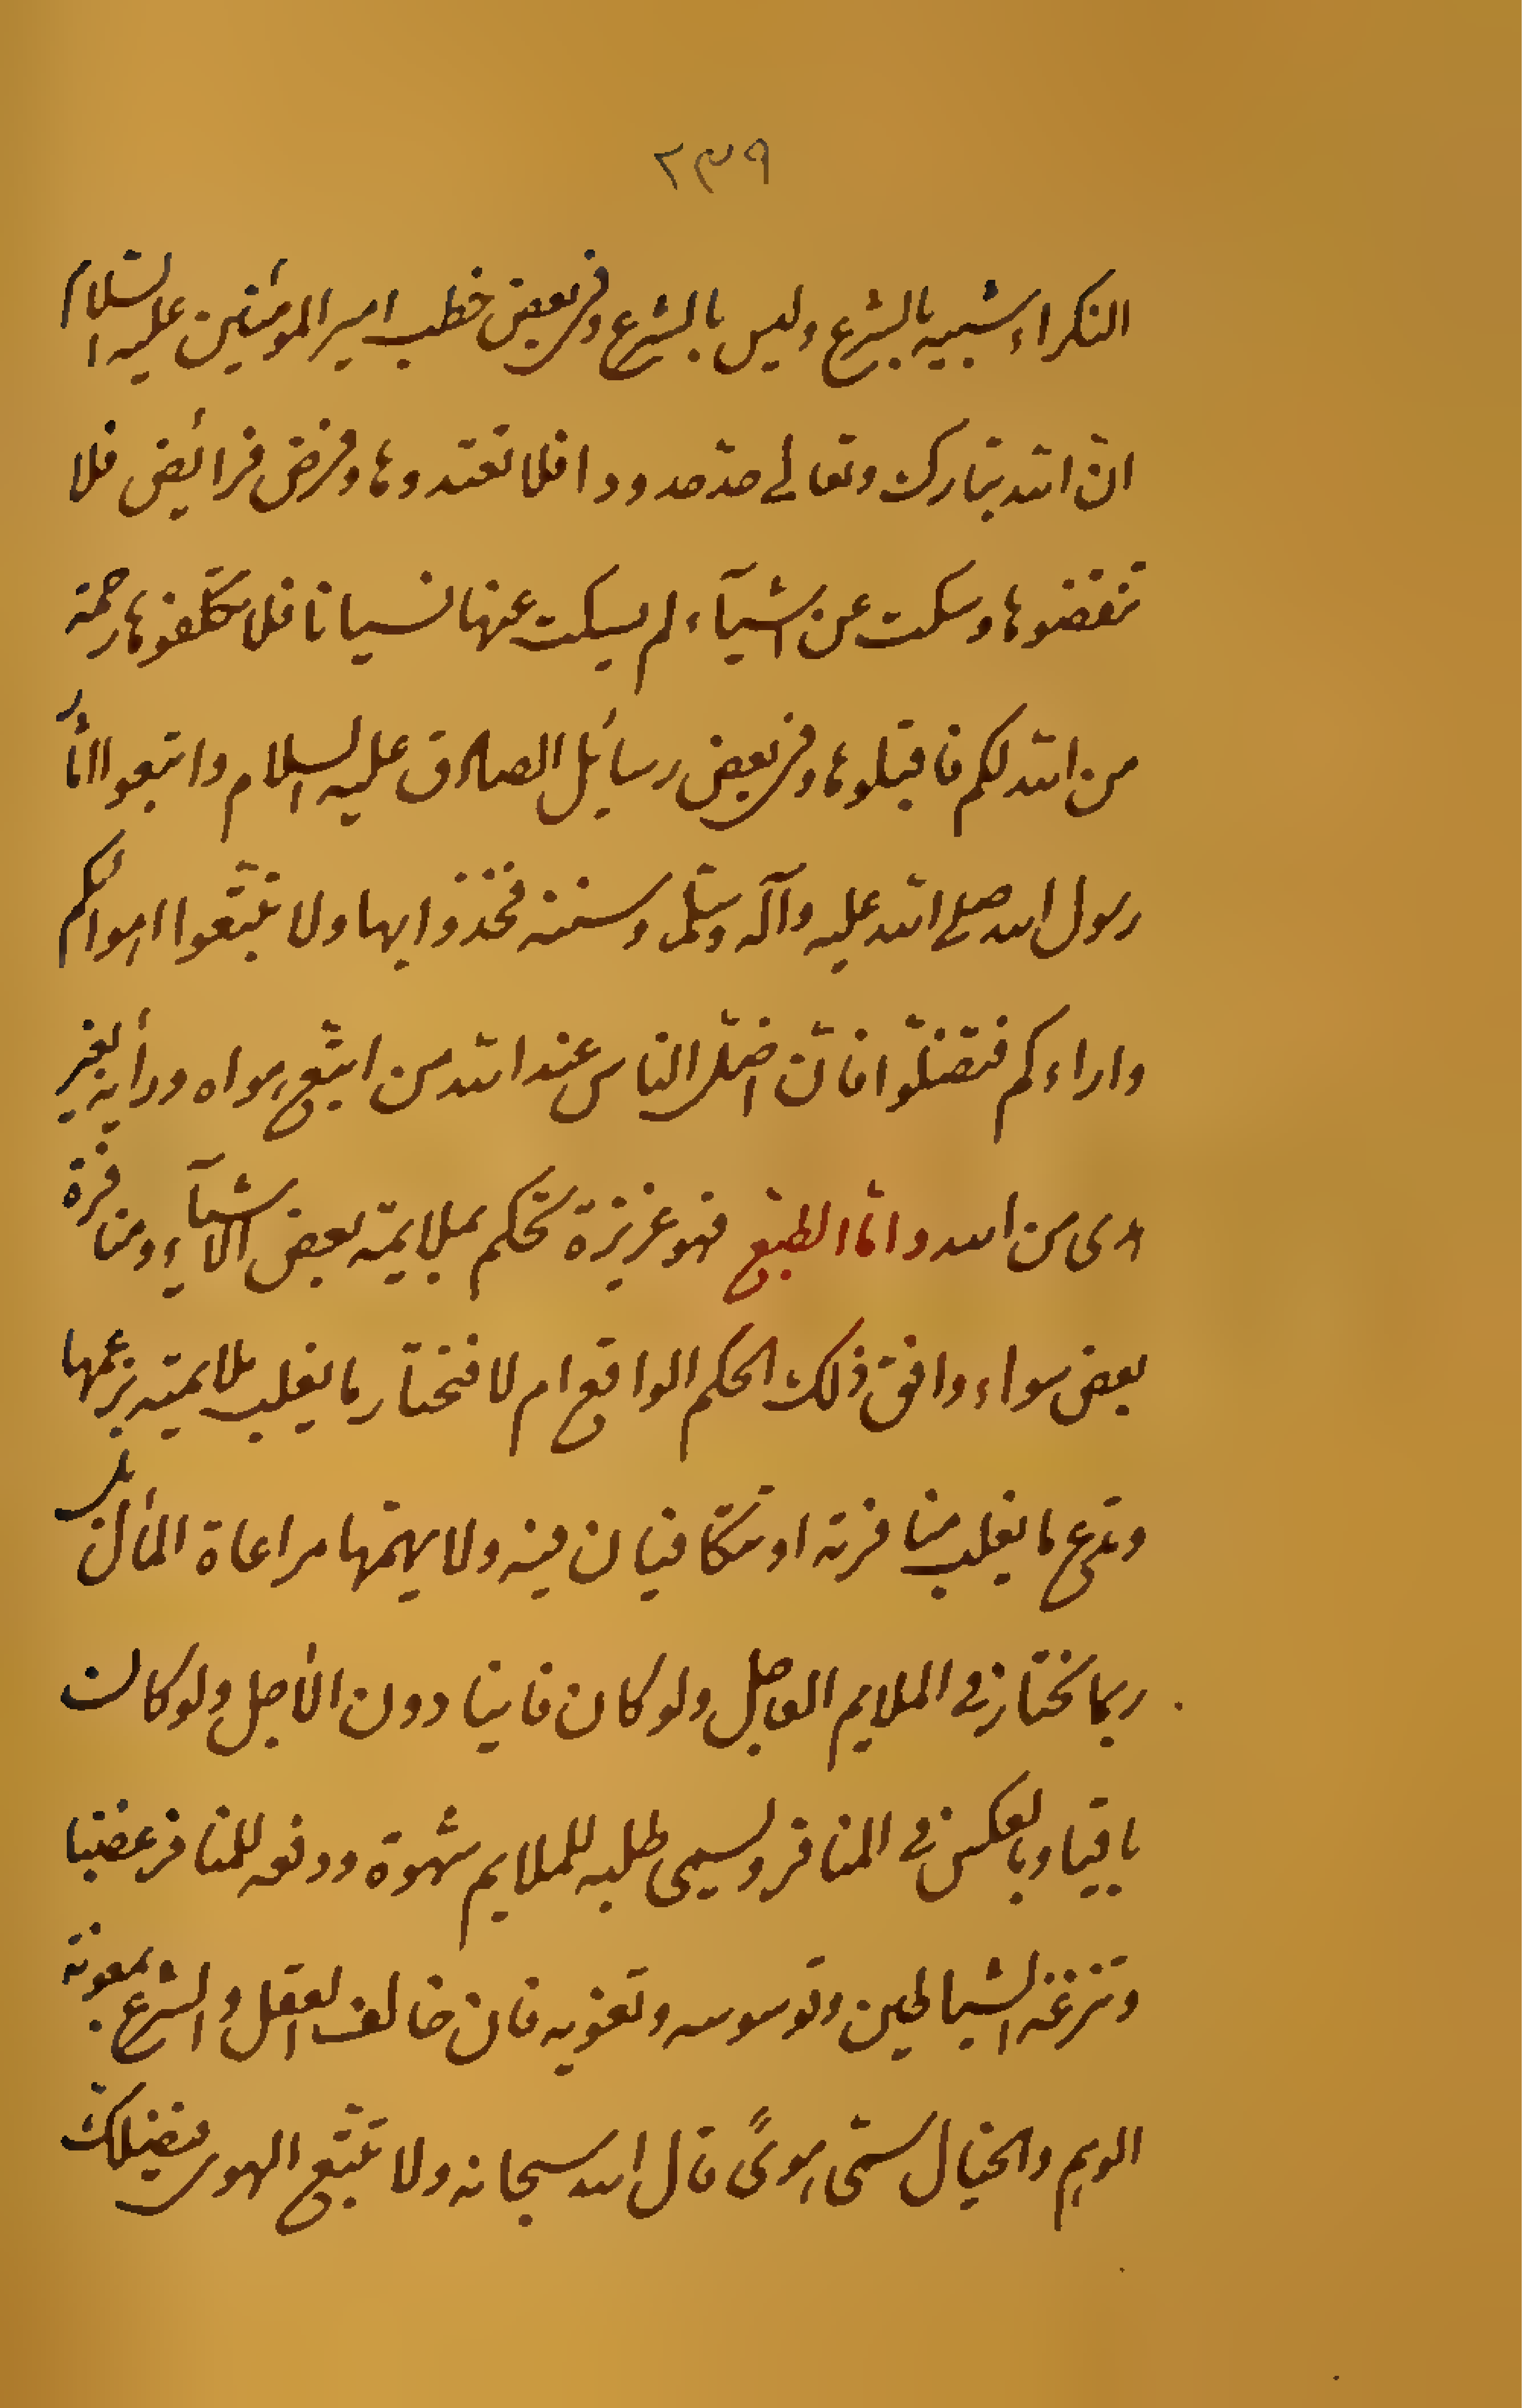 ٢٣٩
النكراء شبيه بالشرع وليس بالشرع وفي بعض خطب امير المؤمنين عليه السّلام
انّ الله تبارك وتعالى حدّ حدودا فلا تعتدوها وفرض فرائض فلا
تنقضوها وسكت عن اشيآء لم يسكت عنها نسيانا فلا تكلّفوها رحمة
من الله لكم فاقبلوها وفي بعض رسائل الصادق عليه السلام واتبعوا اثار
رسول الله صلى الله عليه وآله وسلّم وسنته فخذوا بها ولا تتّبعوا اهواكم
واراءكم فتضلّوا فانّ اضلّ الناس عند الله من اتبع هواه ورأيه بغير
هدى من الله وامّا الطبع فهو غريزة تحكم بملايمة بعض الاشيآء ومنافرة
بعض سواء وافق ذلك الحكم الواقع ام لا فتختار ما يغلب ملايمته بزعمها
وتدع ما يغلب منافرته او تتكافيان فيه ولا يهمّها مراعاة المأل بل
ربما تختار في الملايم العاجل ولو كان فانيا دون الأجل ولو كان
باقيا وبالعكس في المنافر ويسمى طلبه للملايم شهوة ودفعه للمنافر غضبا
وتنزغه الشياطين وتوسوسه وتغويه فان خالف العقل والشرع بمعونة
الوهم والخيال سمّى هوىً قال الله سبحانه ولا تتّبع الهوى فيضلّك